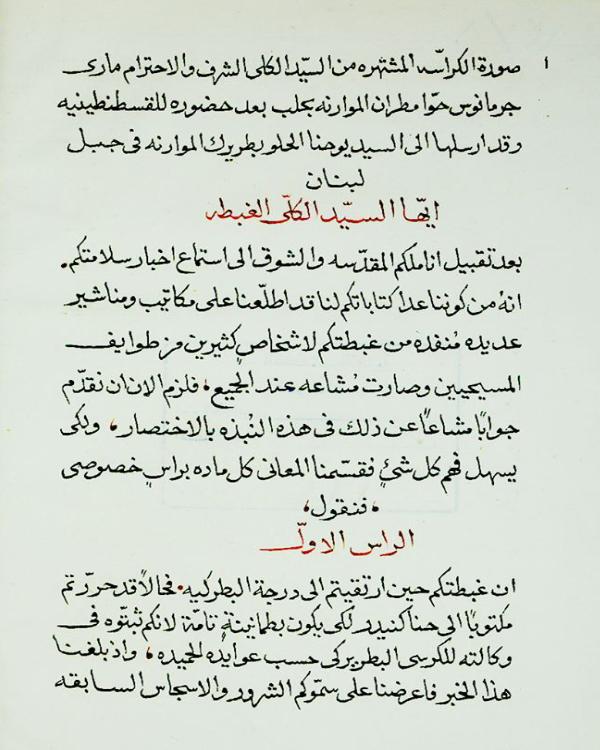 ١
صورة الكراسه المشتهره من السيّد الكلى الشرف والاحترام مارى
جرمانوس حوّا مطران الموارنه بحلب بعد حضوره للقسطنطينيه
وقد ارسلها الى السيد يوحنا الحلو بطريرك الموارنه فى جبل
لبنان
ايّها السيّد الكلّى الغبطه
بعد تقبيل اناملكم المقدّسه والشوق الى استماع اخبار سلامتكم.
انهُ من كوننا عدا كتاباتكم لنا قد اطلّعنا على مكاتيب ومناشير
عديده مُنفده من غبطتكم لاشخاصٍ كثيرين من طوايف
المسيحيين وصارت مُشاعه عند الجميع، فلزم الان ان نقدّم
جوابًا مشاعًا عن ذلك فى هذه النُبذه بالاختصار، ولكى
يسهل فهم كل شئٍ فقسّمنا المعانى كل ماده براسٍ خصوصى
، فنقول،
الراس الاوّل
ان غبطتكم حين ارتقيتم الى درجة البطركيه. فحالاً قد حرّرتم
مكتوبًا الى حنا كنيدر لكى يكون بطمانينةٍ تامّة لانكم ثبتّوه فى
وكالته للكرسى البطريركى حسب عوايده الحميده، واذ بلغنا
هذا الخبر فاعرضنا على سموّكم الشرور والاسجاس السابقه